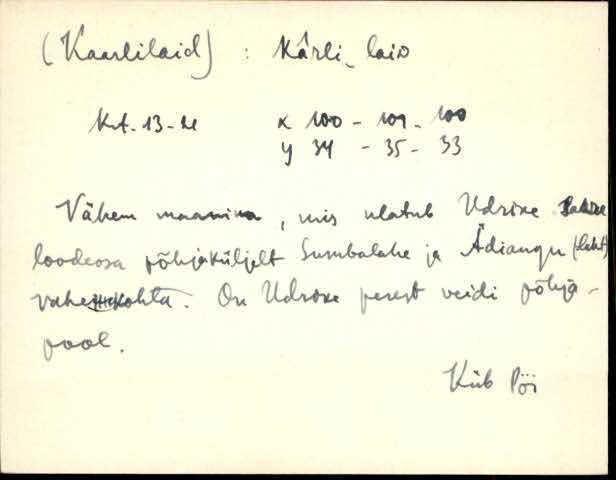 (Kaarlilaid) : Kārli_laid
Krt. 13-
x 100 - 101 - 100
y 34 - 35 - 33
Vähem maanina, mis ulatub Udrixe
loodeosa põhjaküljelt Sumbalahe ja Ädiangu (laht)
vahekohta. On Udrixe perest veidi põhja-
pool.
Küb Pöi